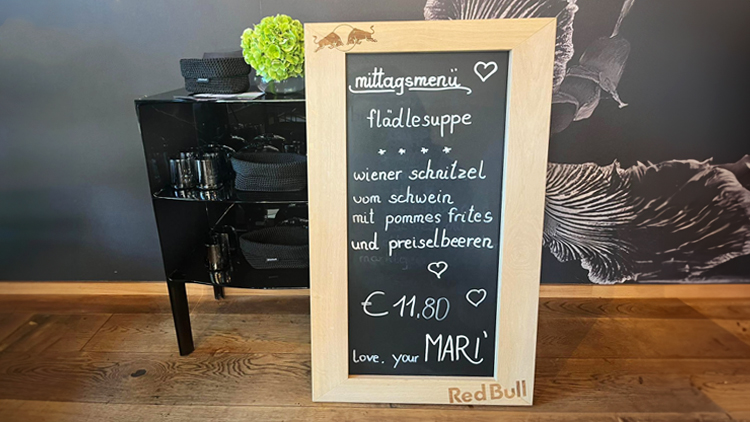 mittagsmenü
flädlesuppe
* * * *
wiener schnitzel
vom schwein
mit pommes frites
und preiselbeeren
€ 11,80
love, your MARI'
Red Bull